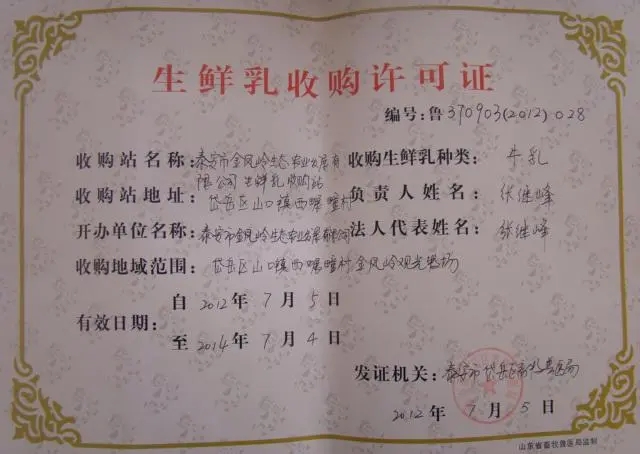 生鲜乳收购许可证
编号:鲁370903(2012)028
收购站名称:泰安市金凤岭生态农业发展有
限公司生鲜乳收购站
收购生鲜乳种类:牛乳
收购站地址:岱岳区山口镇西 村
负责人姓名:张继峰
开办单位名称:泰安市金凤岭生态农业发展有限公司
法人代表姓名:张继峰
收购地域范围:岱岳区山口镇西 村金凤岭观光牧场
有效日期:
自2012年7月5日
至2014年7月4日
发证机关:泰安市岱岳区畜牧兽医局
2012年7月5日
山东省畜牧兽医局监制